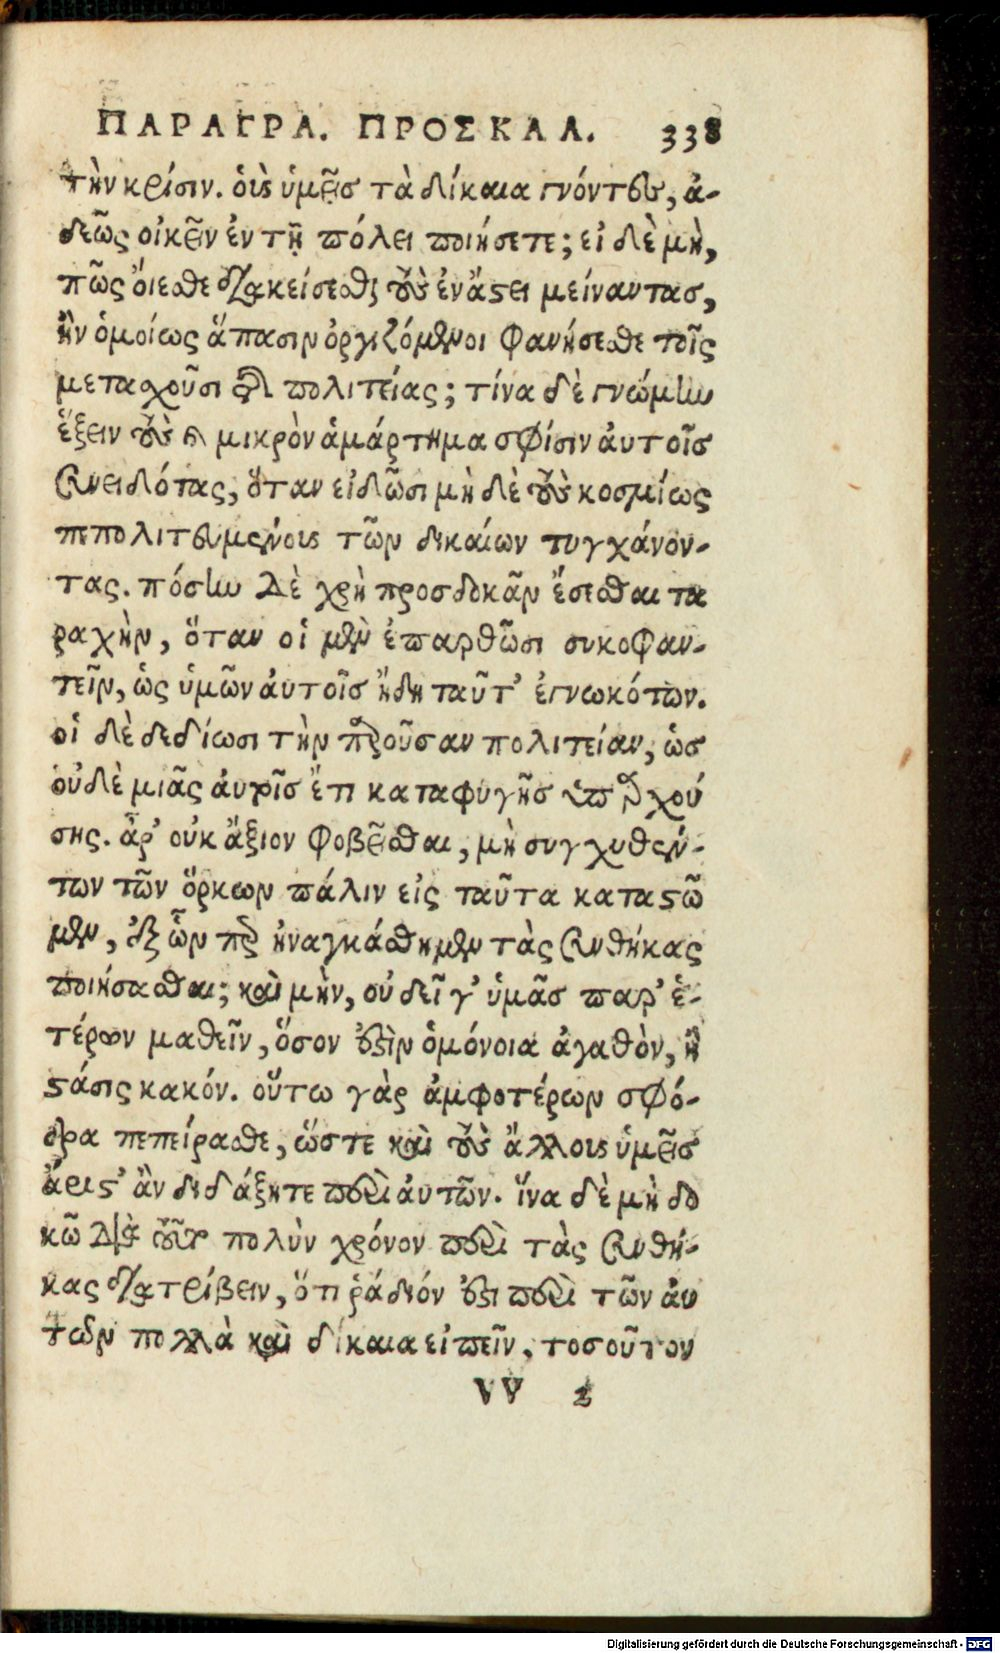 ΠΑΡΑΓΡΑ. ΠΡΟΣΚΑΛ. 338
τὴν κρίσιν. οἷς ὑμεῖς τὰ δίκαια γνόντες, ἀ-
δεῶς οἰκεῖν ἐν τῇ πόλει ποιήσετε; εἰ δὲ μὴ,
πῶς ὄιεσθε διακείσεσθαι τοὺς ἐν ἄστει μείναντας,
ἢν ὁμοίως ἅπασιν ὀργιζόμενοι φανήσεσθε τοῖς
μετασχοῦσι τῆς πολιτείας; τίνα δὲ γνώμην
ἕξειν τοὺς καὶ μικρὸν ἁμάρτημα σφίσιν ἀυτοῖς
συνειδότας, ὅταν εἰδῶσι μὴ δὲ τοὺς κοσμίως
πεπολιτευμένους τῶν δικαίων τυγχάνον-
τας. πόσην δὲ χρὴ προσδοκᾶν ἔσεσθαι τα
ραχὴν, ὅταν οἱ μὲν ἐπαρθῶσι συκοφαν-
τεῖν, ὡς ὑμῶν ἀυτοῖς ἤδη ταῦτ' ἐγνωκότων.
οἱ δὲ δεδίωσι τὴν παροῦσαν πολιτείαν, ὡς
οὐδὲ μιᾶς ἀυτοῖς ἔτι καταφυγῆς ὑπαρχού
σης. ἆρ' οὐκ ἄξιον φοβεῖσθαι, μὴ συγχυθέν-
των τῶν ὅρκων πάλιν εἰς ταῦτα καταστῶ
μεν, ἐξ ὧν περ ἠναγκάσθημεν τὰς συνθήκας
ποιήσασθαι; καὶ μὴν, οὐ δεῖ γ' ὑμᾶς παρ' ἑ-
τέρων μαθεῖν, ὅσον ἐστὶν ὁμόνοια ἀγαθὸν, ἢ
στάσις κακόν. οὕτω γὰρ ἀμφοτέρων σφό-
δρα πεπείρασθε, ὥστε καὶ τοὺς ἄλλους ὑμεῖς
ἄριστ' ἂν διδάξητε περὶ ἀυτῶν. ἵνα δὲ μὴ δο
κῶ διὰ τοῦτο πολὺν χρόνον περὶ τὰς συνθή-
κας διατρίβειν, ὅτι ῥάδιόν ἐστι περὶ τῶν ἀυ
τῶν πολλὰ καὶ δίκαια εἰπεῖν, τοσοῦτον
VV 2
Digitalisierung gefördert durch die Deutsche Forschungsgemeinschaft - DFG